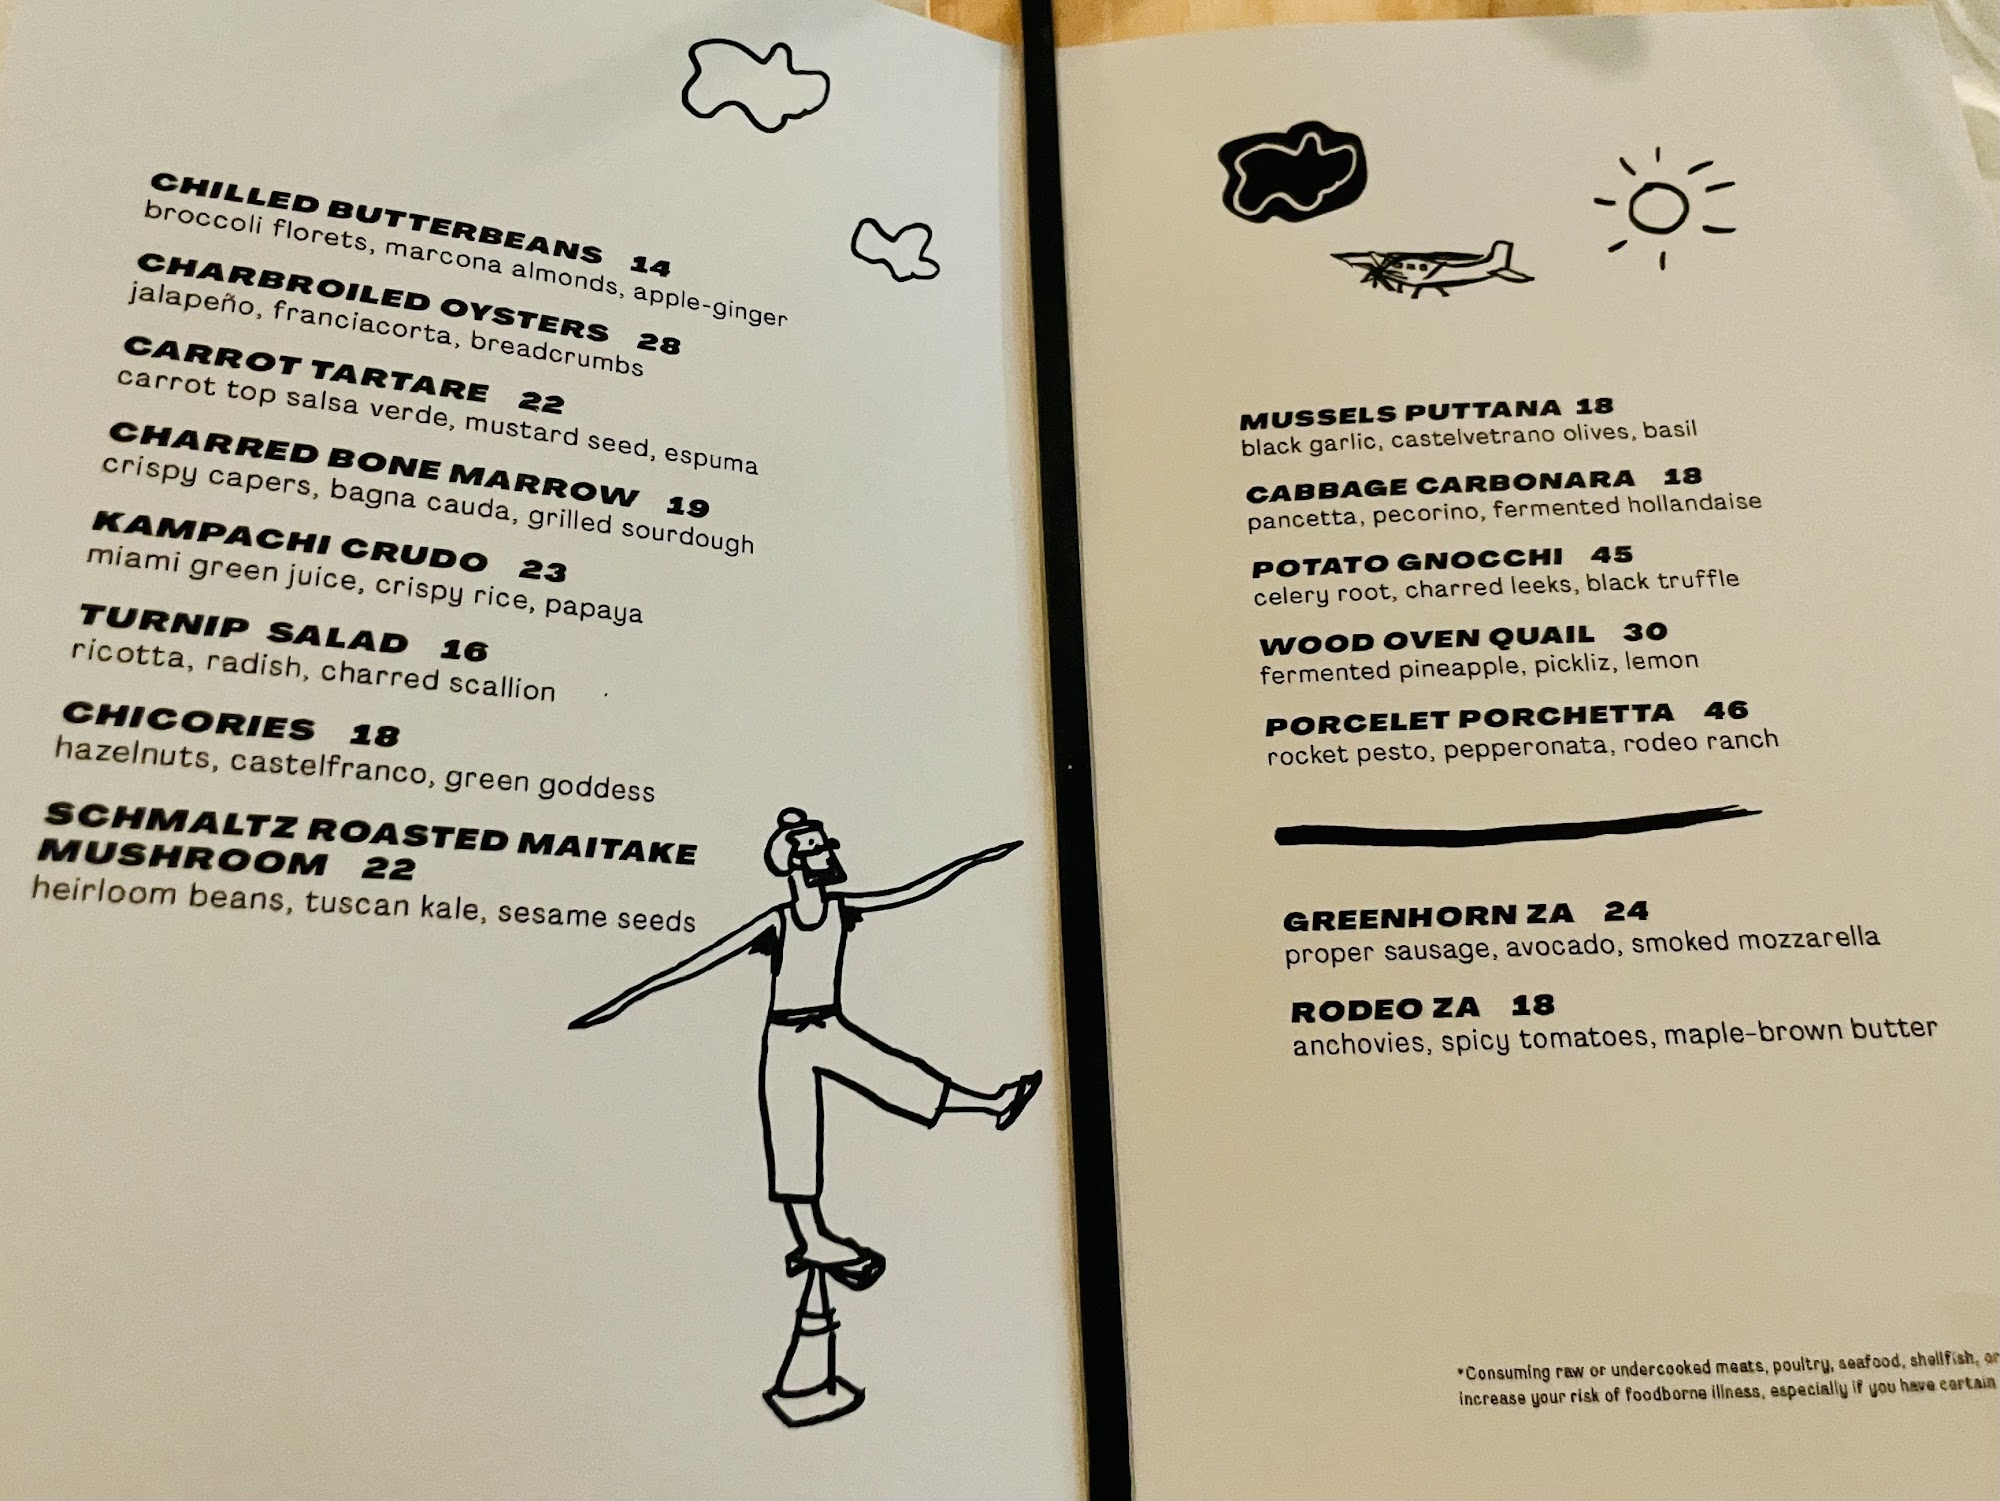 CHILLED BUTTERBEANS 14
broccoli florets, marcona almonds, apple-ginger
CHARBROILED OYSTERS 28
jalapeño, franciacorta, breadcrumbs
CARROT TARTARE 22
carrot top salsa verde, mustard seed, espuma
CHARRED BONE MARROW 19
crispy capers, bagna cauda, grilled sourdough
KAMPACHI CRUDO 23
miami green juice, crispy rice, papaya
TURNIP SALAD 16
ricotta, radish, charred scallion
CHICORIES 18
hazelnuts, castelfranco, green goddess
SCHMALTZ ROASTED MAITAKE
MUSHROOM 22
heirloom beans, tuscan kale, sesame seeds
MUSSELS PUTTANA 18
black garlic, castelvetrano olives, basil
CABBAGE CARBONARA 18
pancetta, pecorino, fermented hollandaise
POTATO GNOCCHI 45
celery root, charred leeks, black truffle
WOOD OVEN QUAIL 30
fermented pineapple, pickliz, lemon
PORCELET PORCHETTA 46
rocket pesto, pepperonata, rodeo ranch
GREENHORN ZA 24
proper sausage, avocado, smoked mozzarella
RODEO ZA 18
anchovies, spicy tomatoes, maple-brown butter
*Consuming raw or undercooked meats, poultry, seafood, shellfish, or
increase your risk of foodborne illness, especially if you have certain